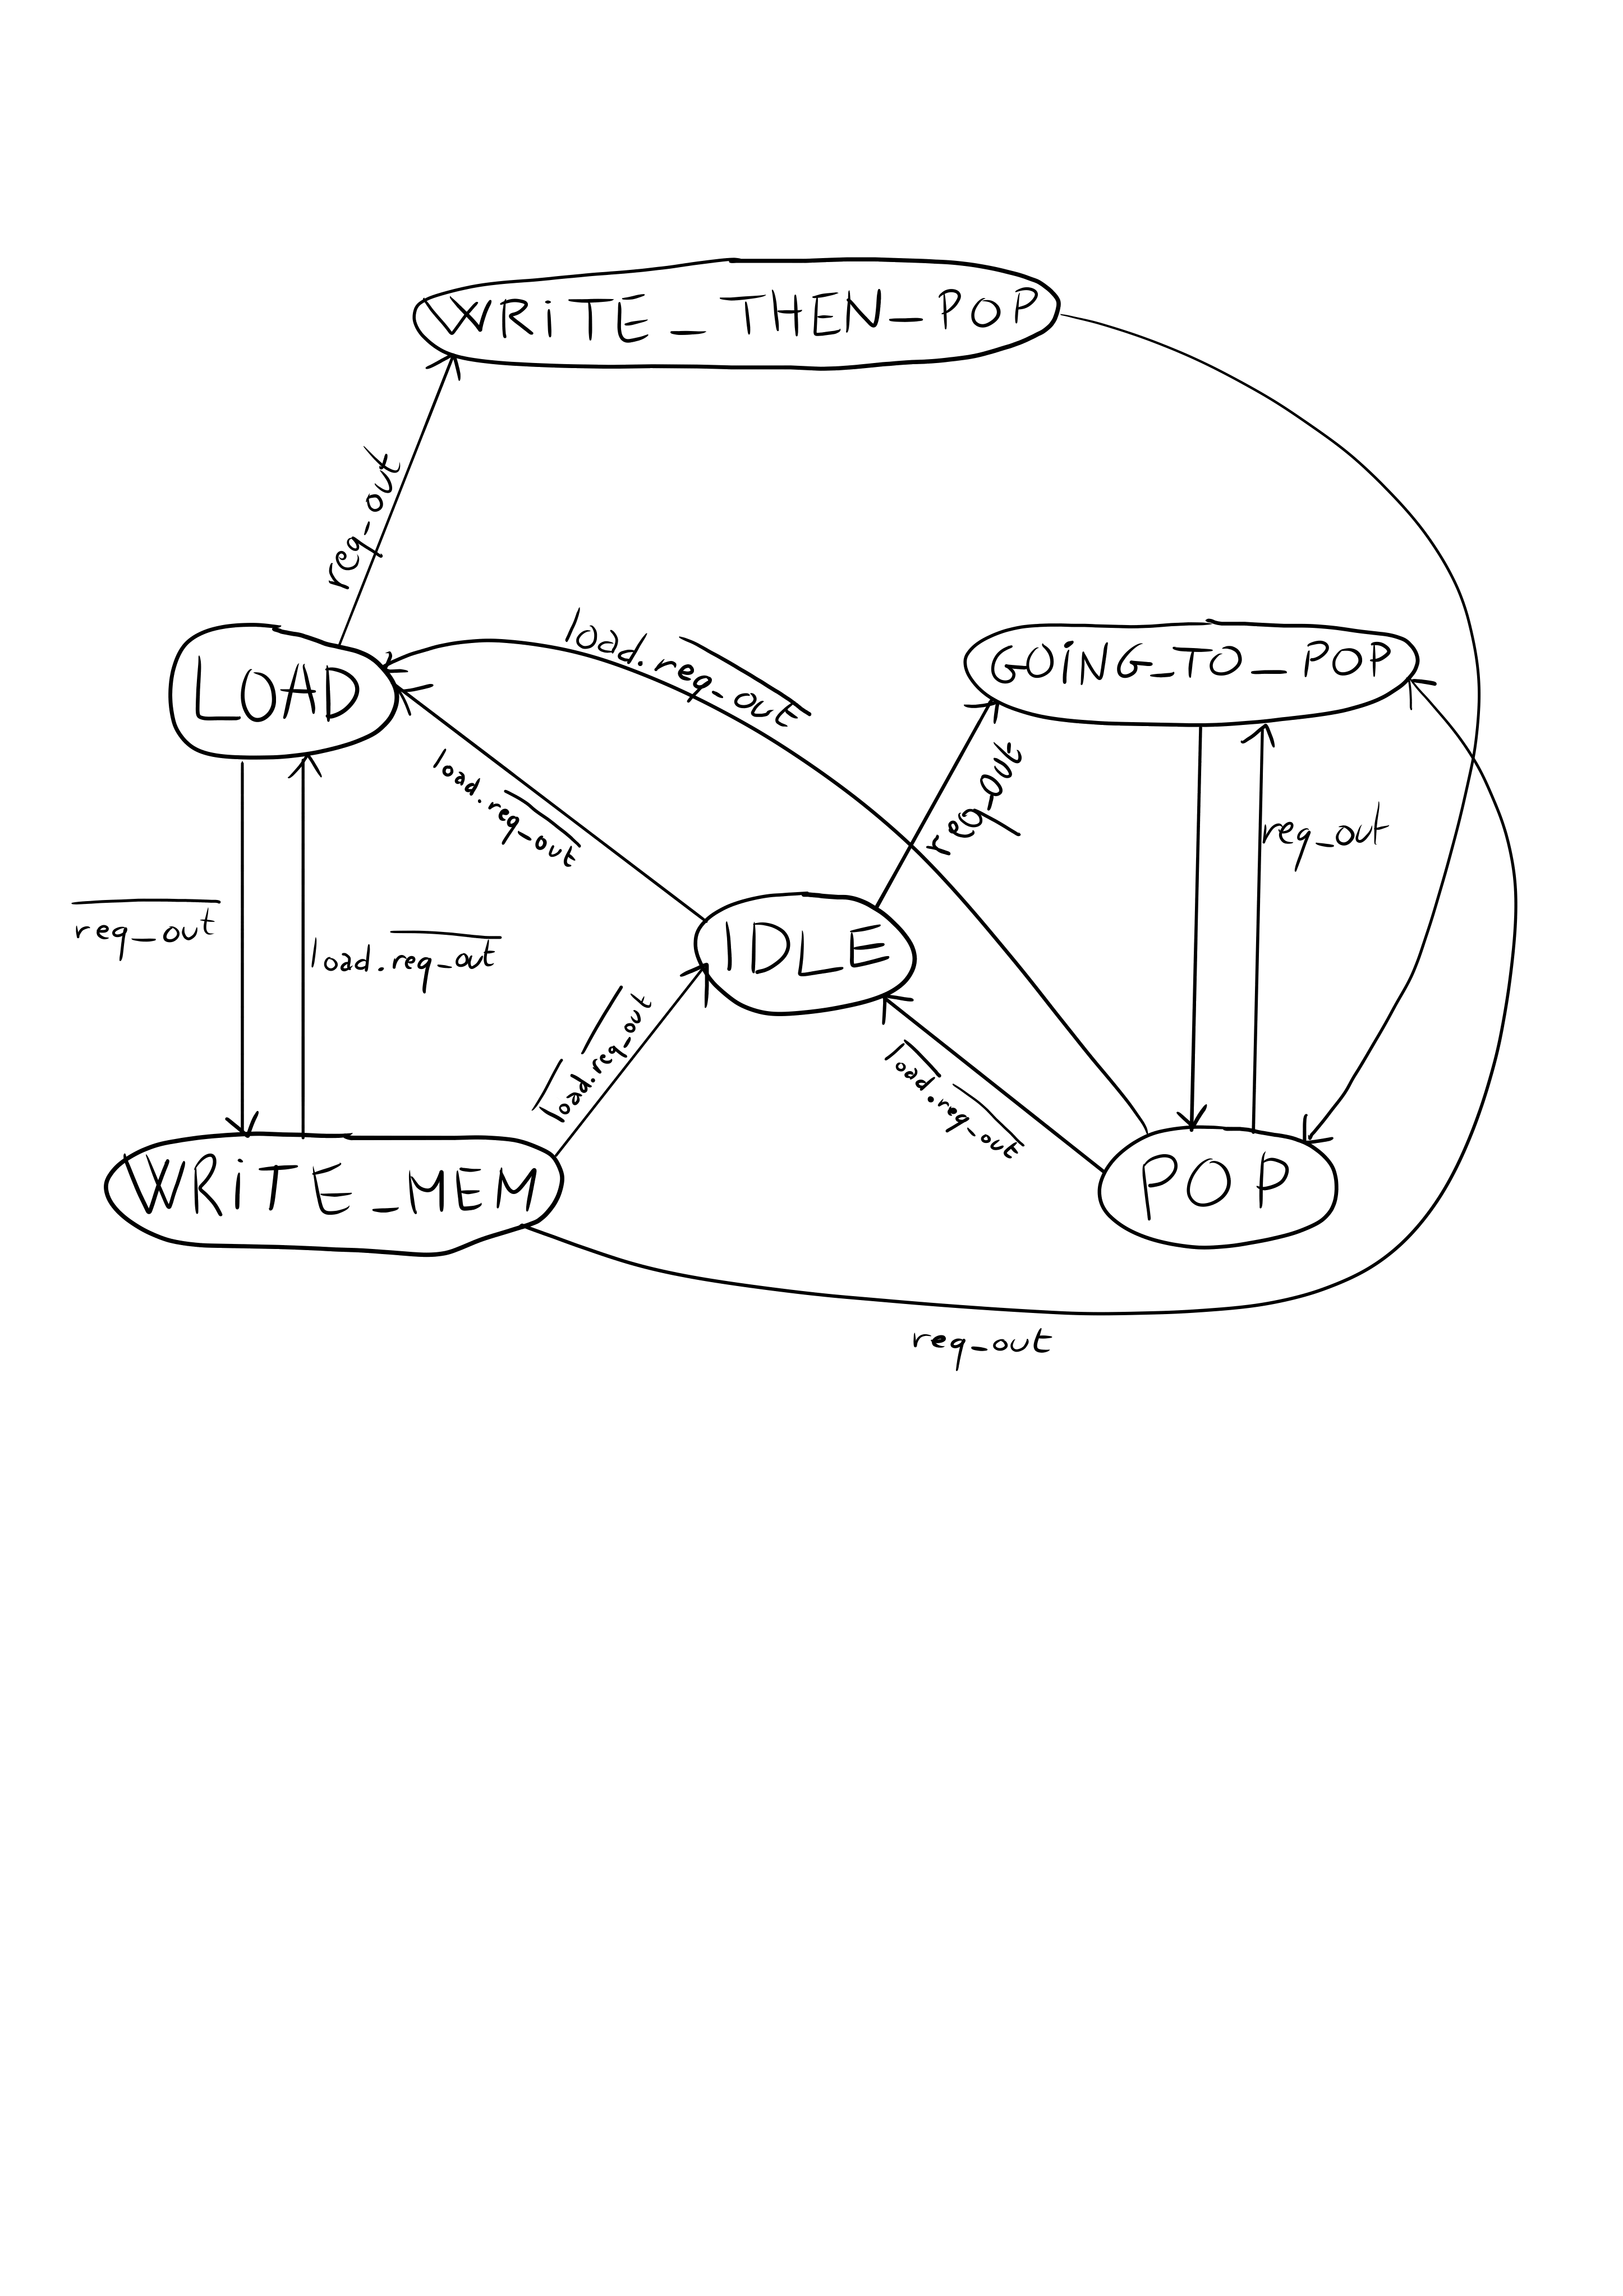 WRiTE_THEN_POP
req_out
load.req_out
LOAD
GOiNG_TO_POP
load.req_out
req_out
req_out
req_out
load.req_out
IDLE
load.req_out
load.req_out
WRiTE_MEM
POP
req_out